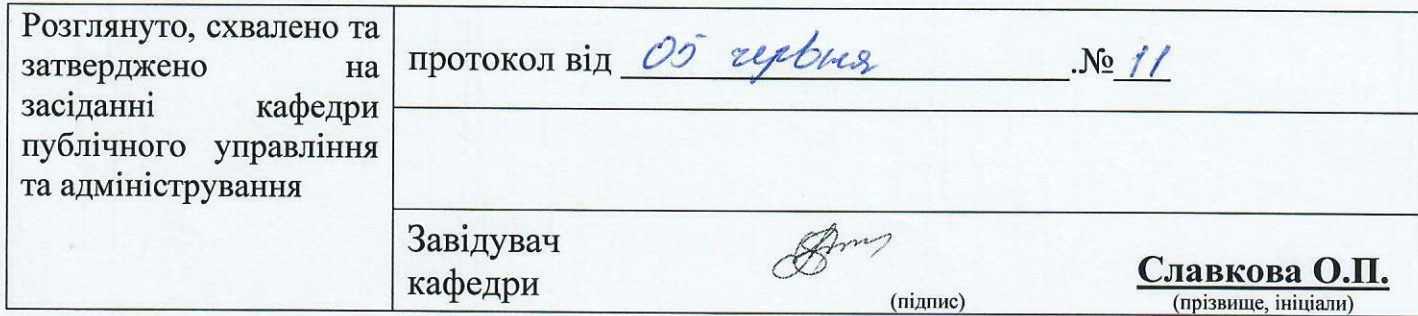 Розглянуто, схвалено та
затверджено на
засіданні кафедри
публічного управління
та адміністрування
протокол від 05 червня .№ 11
Завідувач
кафедри
(підпис)
Славкова О.П.
(прізвище, ініціали)